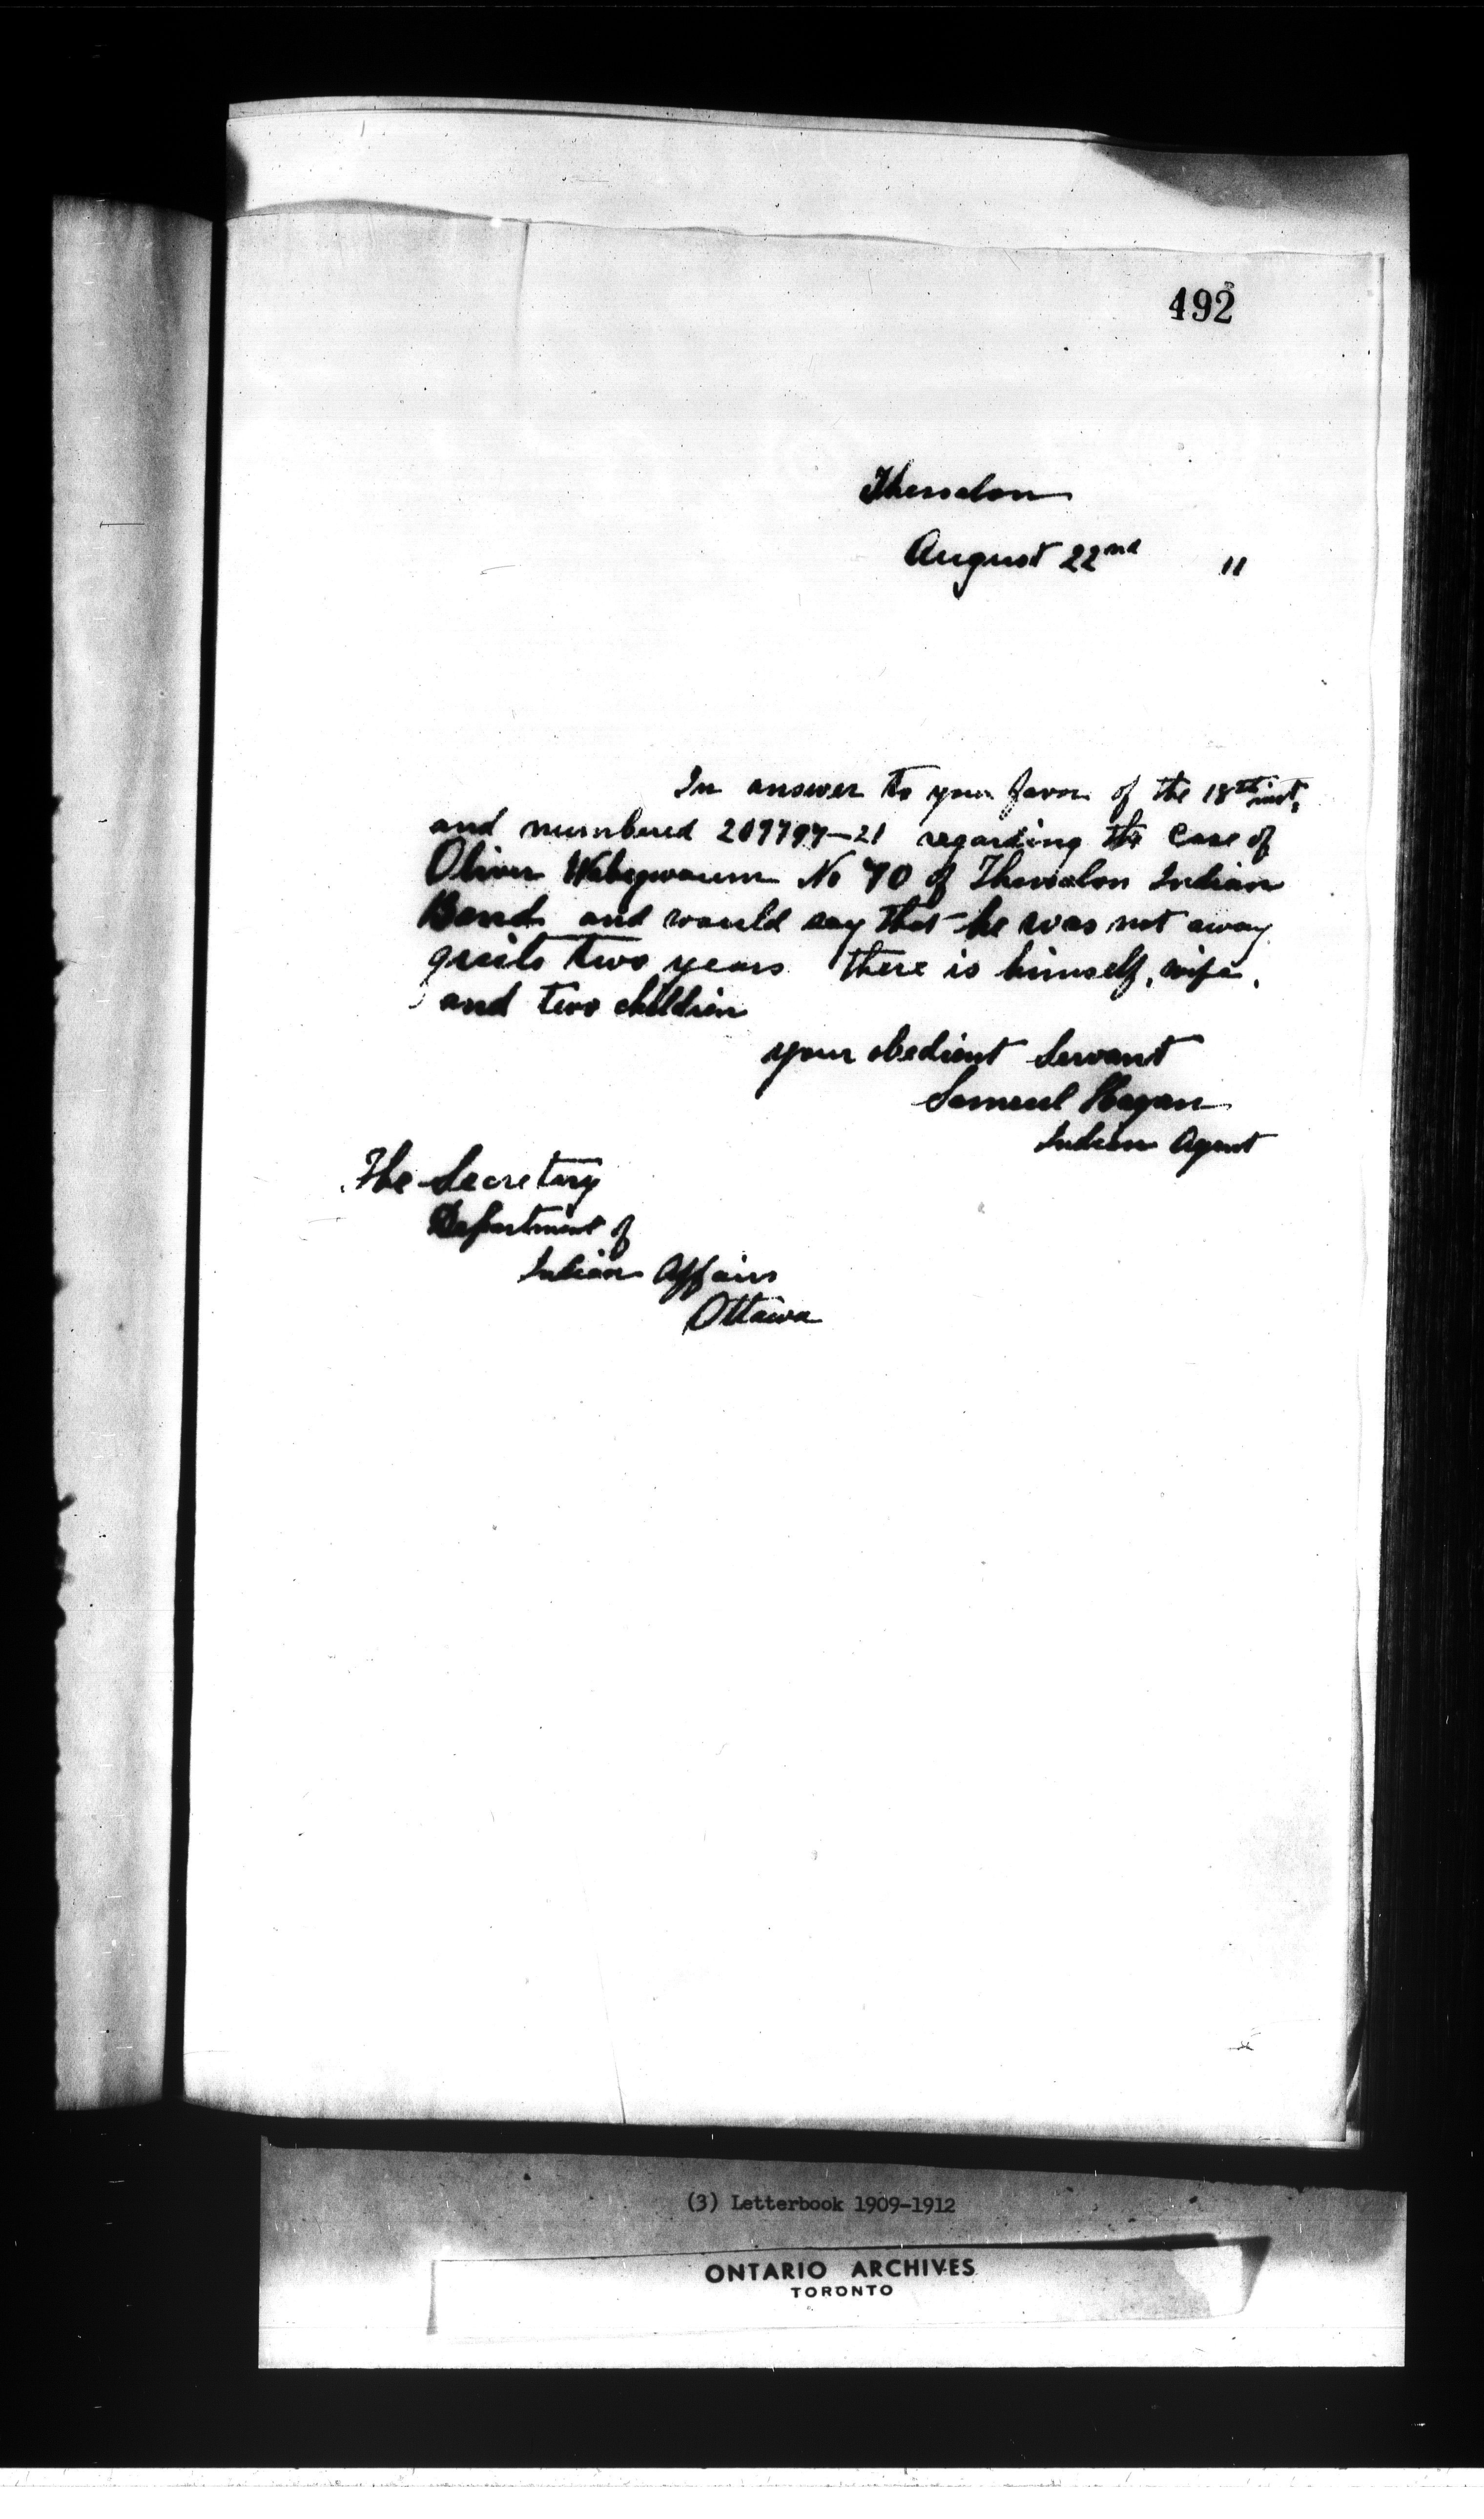 492
Thessalon
August 22nd 11
In answer to your favor of the 18th inst,
and numbered 209797-21 regarding the Case of
Oliver Wabegwaum No 70 of Thessalon Indian
Band and would say that he was not away
quite two years there is himself, wife,
and two children
your obedient Servant
Samuel Hagan
Indian Agent
The Secretary
Department of
Indian Affairs
Ottawa
(3) Letterbook 1909-1912
ONTARIO ARCHIVES
TORONTO